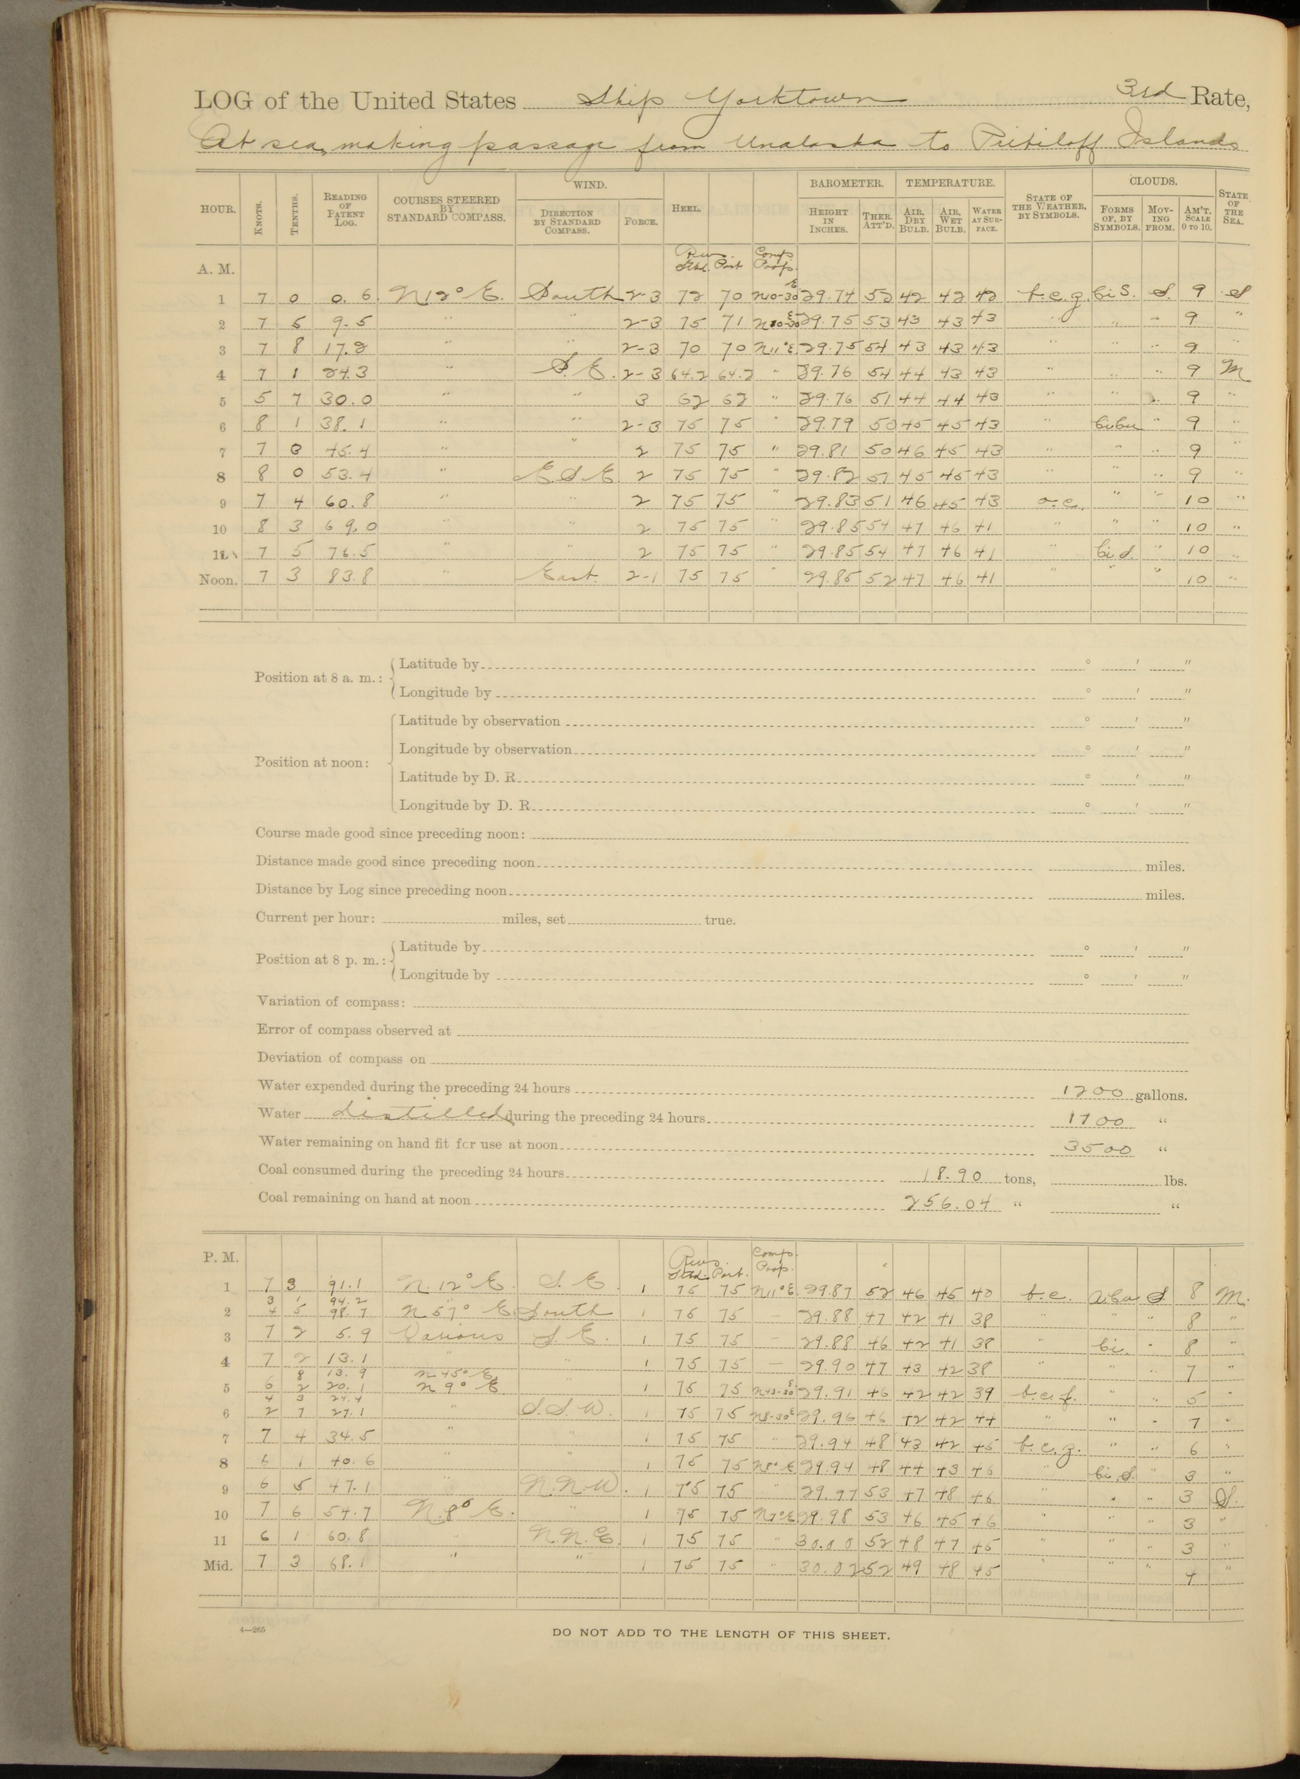 LOG of the United States Ship Yorktown 3rd Rate,
At sea, making passage from Unalaska to Pribiloff Islands
HOUR. KNOTS. TENTHS. READING OF PATENT LOG. COURSES STEERED BY STANDARD COMPASS. WIND. DIRECTION BY STANDARD COMPASS. FORCE. HEEL. BAROMETER. HEIGHT IN INCHES. THER. ATT'D. TEMPERATURE. AIR, DRY BULB. AIR, WET BULB. WATER AT SURFACE. STATE OF THE WEATHER, BY SYMBOLS. CLOUDS. FORMS OF, BY SYMBOLS. MOVING FROM. AM'T. SCALE 0 TO 10. STATE OF THE SEA.
A. M. Revs. Stbd. Port Comp. Prop.
1 7 0 0.6 N12°E. South 2-3 72 70 N10-30E 29.74 52 42 42 42 b.c.g. Ci S. S. 9 S
2 7 5 9.5 " " 2-3 75 71 N10-30E 29.75 53 43 43 43 " " " 9 "
3 7 8 17.2 " " 2-3 70 70 N11°E. 29.75 54 43 43 43 " " " 9 "
4 7 1 24.3 " S.E. 2-3 64.2 64.2 " 29.76 54 44 43 43 " " " 9 M
5 5 7 30.0 " " 3 62 62 " 29.76 51 44 44 43 " " " 9 "
6 8 1 38.1 " " 2-3 75 75 " 29.79 50 45 45 43 " Cicu " 9 "
7 7 3 45.4 " " 2 75 75 " 29.81 50 46 45 43 " " " 9 "
8 8 0 53.4 " E.S.E. 2 75 75 " 29.82 51 45 45 43 " " " 9 "
9 7 4 60.8 " " 2 75 75 " 29.83 51 46 45 43 o.c. " " 10 "
10 8 3 69.0 " " 2 75 75 " 29.85 54 47 46 41 " " " 10 "
11 7 5 76.5 " " 2 75 75 " 29.85 54 47 46 41 " Ci S. " 10 "
Noon. 7 3 83.8 " East. 2-1 75 75 " 29.85 52 47 46 41 " " " 10 "
Position at 8 a. m.: Latitude by ° ′ ″
Longitude by ° ′ ″
Latitude by observation ° ′ ″
Position at noon: Longitude by observation ° ′ ″
Latitude by D. R. ° ′ ″
Longitude by D. R. ° ′ ″
Course made good since preceding noon:
Distance made good since preceding noon miles.
Distance by Log since preceding noon miles.
Current per hour: miles, set true.
Position at 8 p. m.: Latitude by ° ′ ″
Longitude by ° ′ ″
Variation of compass:
Error of compass observed at
Deviation of compass on
Water expended during the preceding 24 hours 1200 gallons.
Water distilled during the preceding 24 hours 1700 "
Water remaining on hand fit for use at noon 3500 "
Coal consumed during the preceding 24 hours 18.90 tons, lbs.
Coal remaining on hand at noon 256.04 " "
P. M. Revs. Stbd. Port. Comp. Prop.
1 7 3 91.1 N.12°E. S.E. 1 75 75 N11°E. 29.87 52 46 45 40 b.c. S 8 M.
3 1 94.2
2 4 5 98.7 N 57° E South 1 75 75 – 29.88 47 42 41 38 " " " 8 "
3 7 2 5.9 Various S.E. 1 75 75 – 29.88 46 42 41 38 " Ci. " 8 "
4 7 2 13.1 " " 1 75 75 – 29.90 47 43 42 38 " " " 7 "
8 13.9 N 45° E.
5 6 2 20.1 N 9° E " 1 75 75 29.91 46 42 42 39 b.c.f. " " 5 "
4 3 24.4
6 2 7 27.1 " S.S.W. 1 75 75 N8-30E 29.96 46 42 42 44 " " " 7 "
7 7 4 34.5 " " 1 75 75 " 29.94 48 43 42 45 b.c.g. " " 6 "
8 6 1 40.6 " " 1 75 75 N8°E 29.94 48 44 43 46 " Ci.S. " 3 "
9 6 5 47.1 " N.N.W. 1 75 75 " 29.97 53 47 48 46 " " " 3 S.
10 7 6 54.7 N.8°E. " 1 75 75 N7°E. 29.98 53 46 45 46 " " " 3 "
11 6 1 60.8 " N.N.E. 1 75 75 " 30.00 52 48 47 45 " " " 3 "
Mid. 7 3 68.1 " " 1 75 75 " 30.02 52 49 48 45 " " " 4 "
4—265
DO NOT ADD TO THE LENGTH OF THIS SHEET.